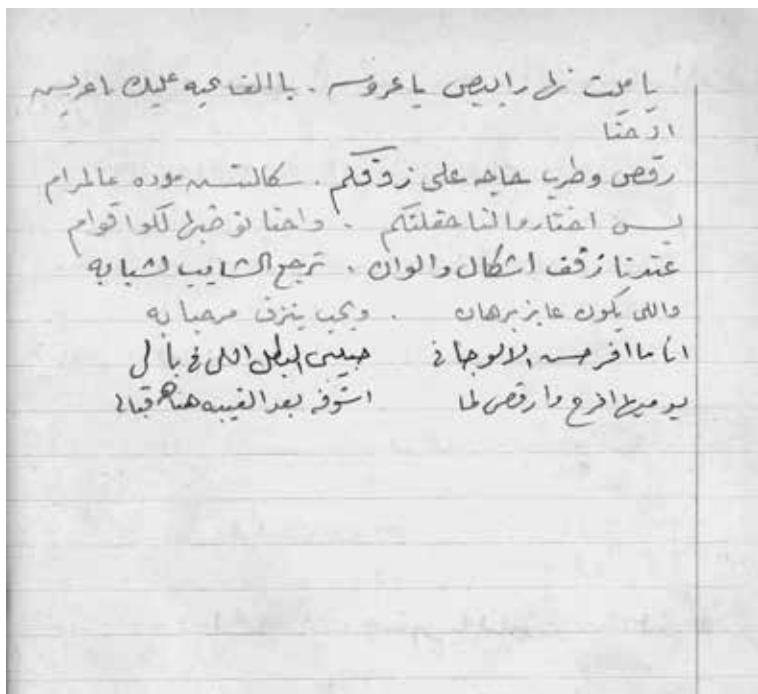 يا ميت نهار ابيض يا عروسه . يا الف نجيه عليك يا عريس
احنا
رقص وطرب حاجه على زوقكم . عالمرام
بس اختاروا لنا حفلتكم . واحنا نوضبها لكوا قوام
عندنا زفف اشكال والوان . ترجع الشايب لشبابه
واللى يكون عايز برهان . ويحب ينزف مرحبا به
انا ما افرحش الا لو جانى حبيبى البطل اللى فى بالى
يوميها افرح وارقص لما اشوفه بعد الغيبه هناه قبالى